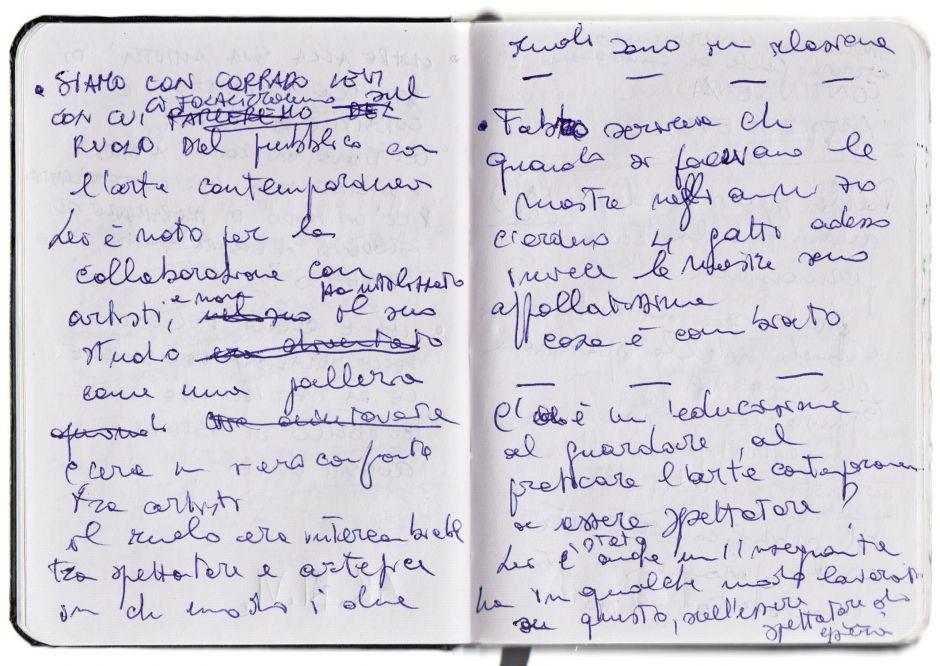 • SIAMO CON CORRADO LEVI
CON CUI ci FOCALIZZIAMO sul
RUOLO del pubblico con
l'arte contemporanea
Lei è noto per la
collaborazione con
artisti, e non il suo
studio
come una galleria
c'era un vero confronto
tra artisti
il ruolo era intercambiabile
tra spettatore e artefice
in che modo i due
ruoli sono in relazione
• Fabro scriveva che
quando si facevano le
mostre negli anni 70
c'erano 4 gatti adesso
invece le mostre sono
affollatissime
cosa è cambiato
C'è un'educazione
al guardare, al
praticare l'arte contemporanea
di essere spettatore?
Lei è stato anche un insegnante
ha in qualche modo lavorato
su questo, sull'essere
spettatore